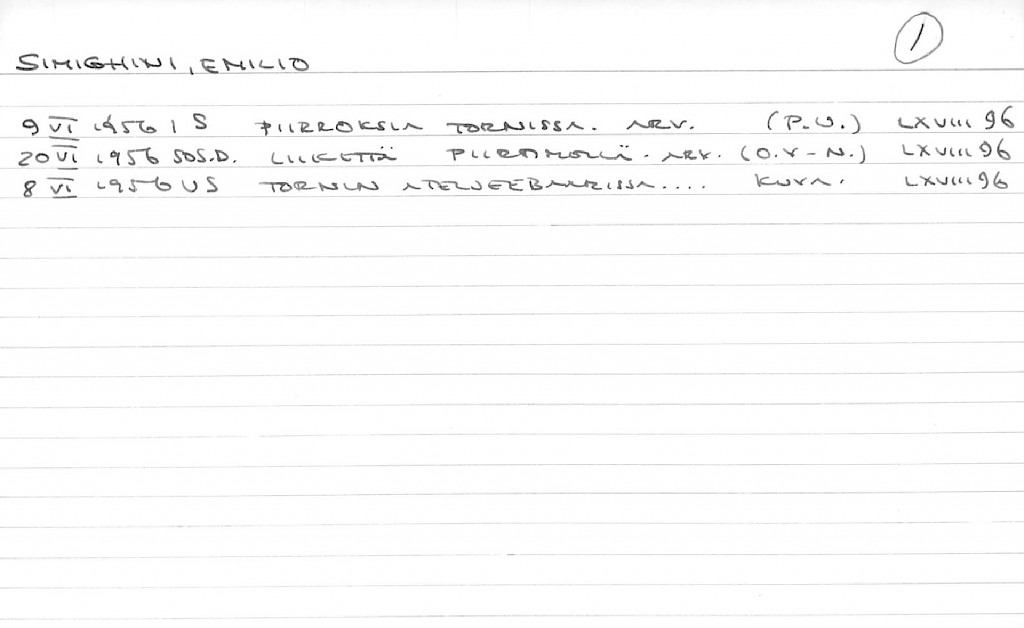 1
SIMIGHINI, EMILIO
9 VI 1956 I S PIIRROKSIA TORNISSA. ARV. (P.V.) LXVIII 96
20 VI 1956 SOS.D. LIIKETTÄ PIIRTIMELLÄ. ARV. (O.V-N.) LXVIII 96
8 VI 1956 US TORNIN ATELJEEBAARISSA.... KUVA. LXVIII 96